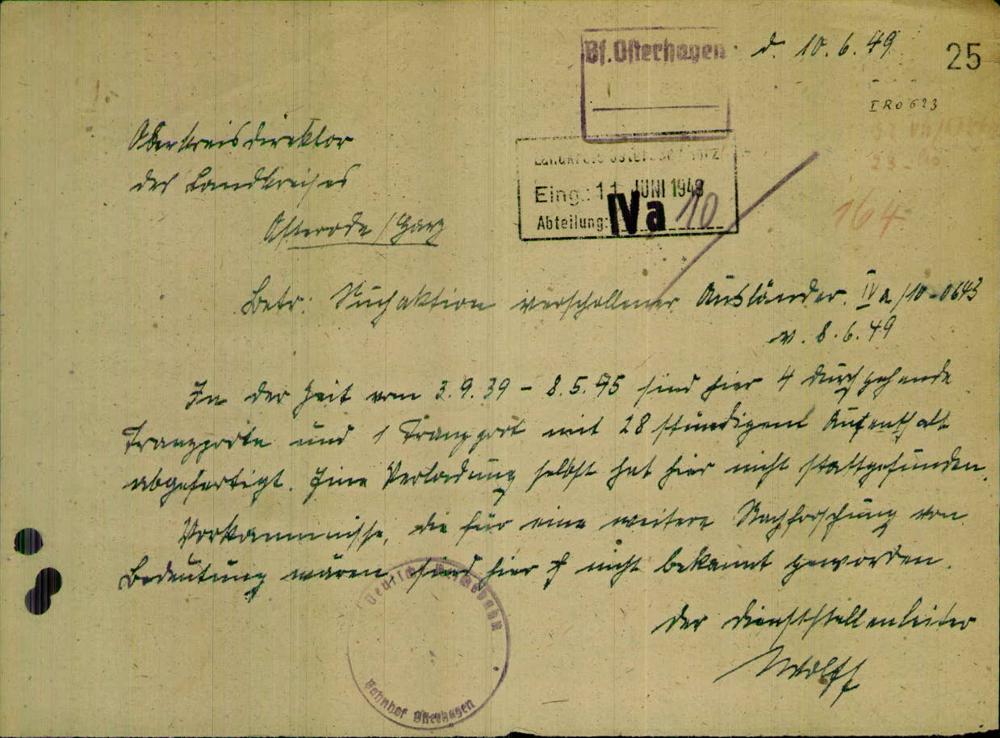 Bf. Osterhagen d. 10.6.49
25
IRO 623
Oberkreisdirektor
des Landkreises
Osterode/Harz
Landkreis Osterode/Harz
Eing.: 11. JUNI 1949
Abteilung: IVa 10
164
Betr: Suchaktion verschollener Ausländer. IV a/10-0643
v. 8.6.49
In der Zeit vom 3.9.39 - 8.5.45 sind hier 4 durchgehende
Transporte und 1 Transport mit 28 stündigem Aufenthalt
abgefertigt. Eine Verladung selbst hat hier nicht stattgefunden.
Vorkommnisse, die für eine weitere Nachforschung von
Bedeutung wären, sind hier nicht bekannt geworden.
Der Dienststellenleiter
Wolff
Deutsche Reichsbahn
Bahnhof Osterhagen